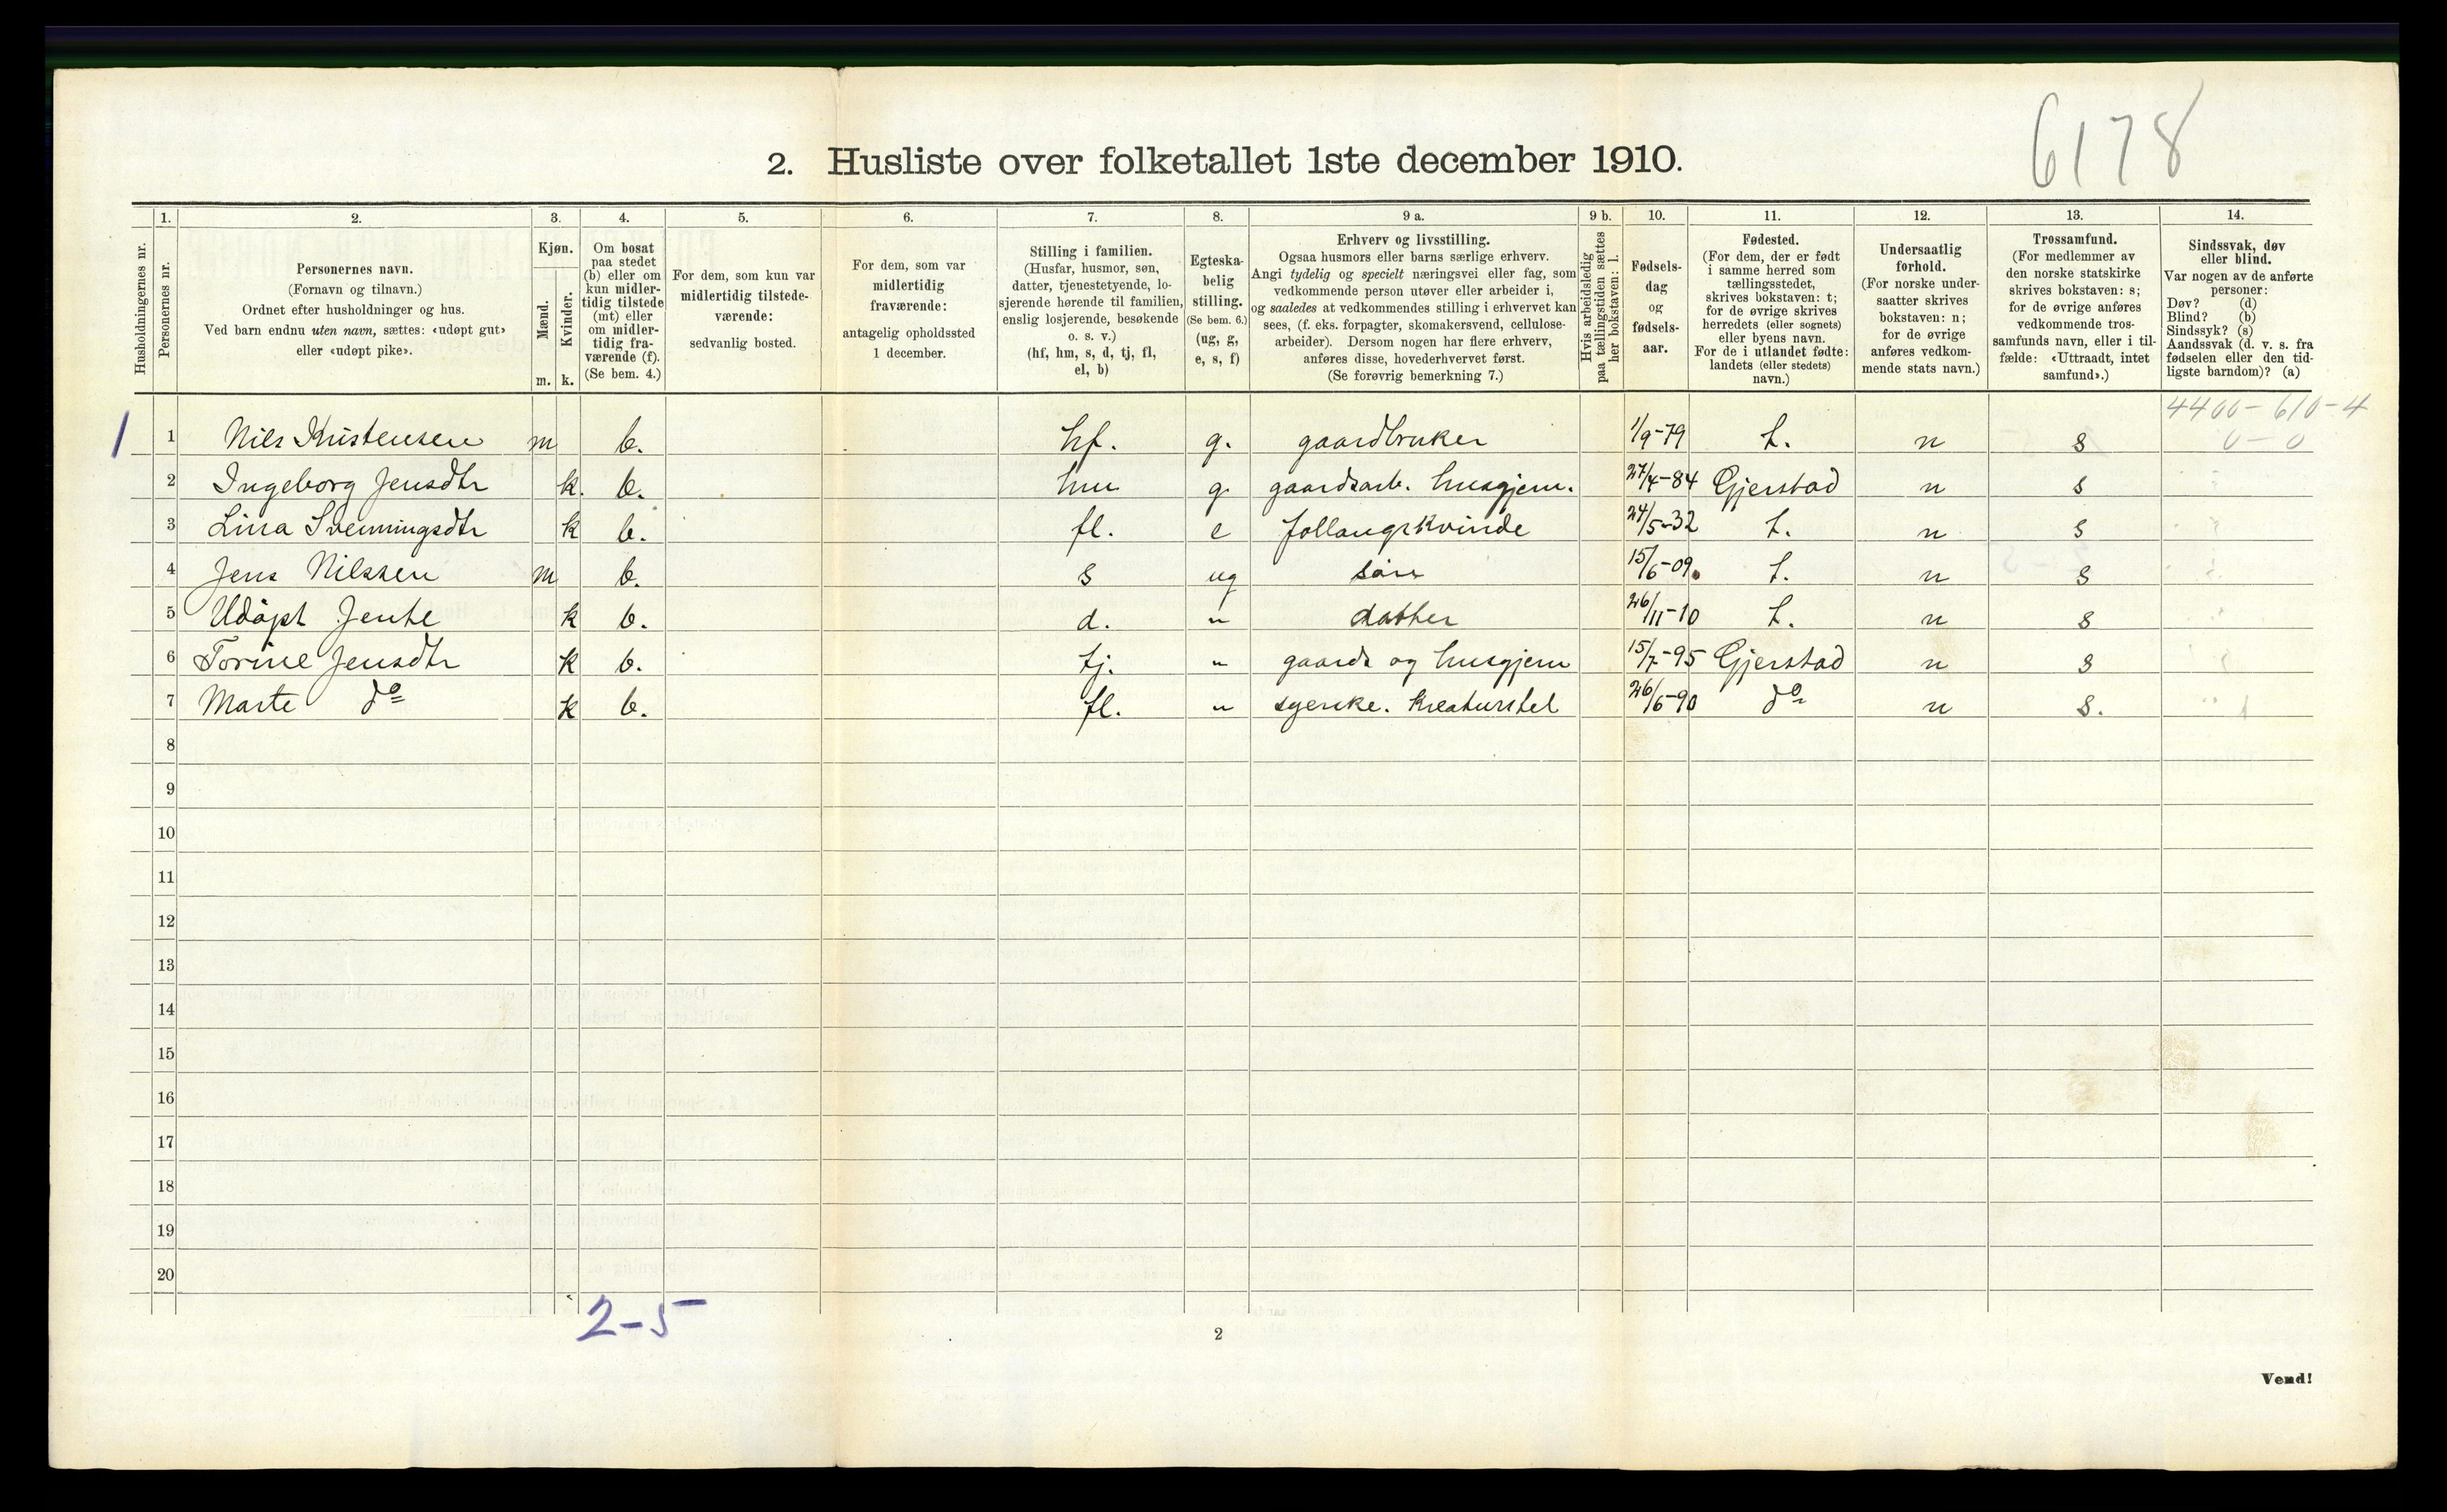 6178
2. Husliste over folketallet 1ste december 1910.
1. 2. 3. 4. 5. 6. 7. 8. 9 a. 9 b. 10. 11. 12. 13. 14.
Husholdningernes nr.
Personernes nr.
Personernes navn.
(Fornavn og tilnavn.)
Ordnet efter husholdninger og hus.
Ved barn endnu uten navn, sættes: «udøpt gut»
eller «udøpt pike».
Kjøn.
Mænd.
Kvinder.
m. k.
Om bosat
paa stedet
(b) eller om
kun midler-
tidig tilstede
(mt) eller
om midler-
tidig fra-
værende (f).
(Se bem. 4.)
For dem, som kun var
midlertidig tilstede-
værende:
sedvanlig bosted.
For dem, som var
midlertidig
fraværende:
antagelig opholdssted
1 december.
Stilling i familien.
(Husfar, husmor, søn,
datter, tjenestetyende, lo-
sjerende hørende til familien,
enslig losjerende, besøkende
o. s. v.)
(hf, hm, s, d, tj, fl,
el, b)
Egteska-
belig
stilling.
(Se bem. 6.)
(ug, g,
e, s, f)
Erhverv og livsstilling.
Ogsaa husmors eller barns særlige erhverv.
Angi tydelig og specielt næringsvei eller fag, som
vedkommende person utøver eller arbeider i,
og saaledes at vedkommendes stilling i erhvervet kan
sees, (f. eks. forpagter, skomakersvend, cellulose-
arbeider). Dersom nogen har flere erhverv,
anføres disse, hovederhvervet først.
(Se forøvrig bemerkning 7.)
Hvis arbeidsledig
paa tællingstiden sættes
her bokstaven: l.
Fødsels-
dag
og
fødsels-
aar.
Fødested.
(For dem, der er født
i samme herred som
tællingsstedet,
skrives bokstaven: t;
for de øvrige skrives
herredets (eller sognets)
eller byens navn.
For de i utlandet fødte:
landets (eller stedets)
navn.)
Undersaatlig
forhold.
(For norske under-
saatter skrives
bokstaven: n;
for de øvrige
anføres vedkom-
mende stats navn.)
Trossamfund.
(For medlemmer av
den norske statskirke
skrives bokstaven: s;
for de øvrige anføres
vedkommende tros-
samfunds navn, eller i til-
fælde: «Uttraadt, intet
samfund».)
Sindssvak, døv
eller blind.
Var nogen av de anførte
personer:
Døv? (d)
Blind? (b)
Sindssyk? (s)
Aandssvak (d. v. s. fra
fødselen eller den tid-
ligste barndom)? (a)
4400-610-4
0-0
1 1 Nils Kristensen m b. hf. g. gaardbruker 1/9-79 t. n s
2 Ingeborg Jensdtr k. b. hm g. gaardsarb. husgjern. 27/4-84 Gjerstad n s
3 Lina Svenningsdtr k b. fl. e follaugskvinde 24/5-32 t. n s
4 Jens Nilssen m b. s ug sön 15/6-09. t. n s
5 Udöpt Jente k b. d. " datter 26/11-10 t. n s
6 Torine Jensdtr k b. tj. " gaards og husgjern 15/7-95 Gjerstad n s
7 Marte do k b. fl. " syerske. Kreaturstel 26/6-90 do n s.
8
9
10
11
12
13
14
15
16
17
18
19
20
2-5
2
Vend!